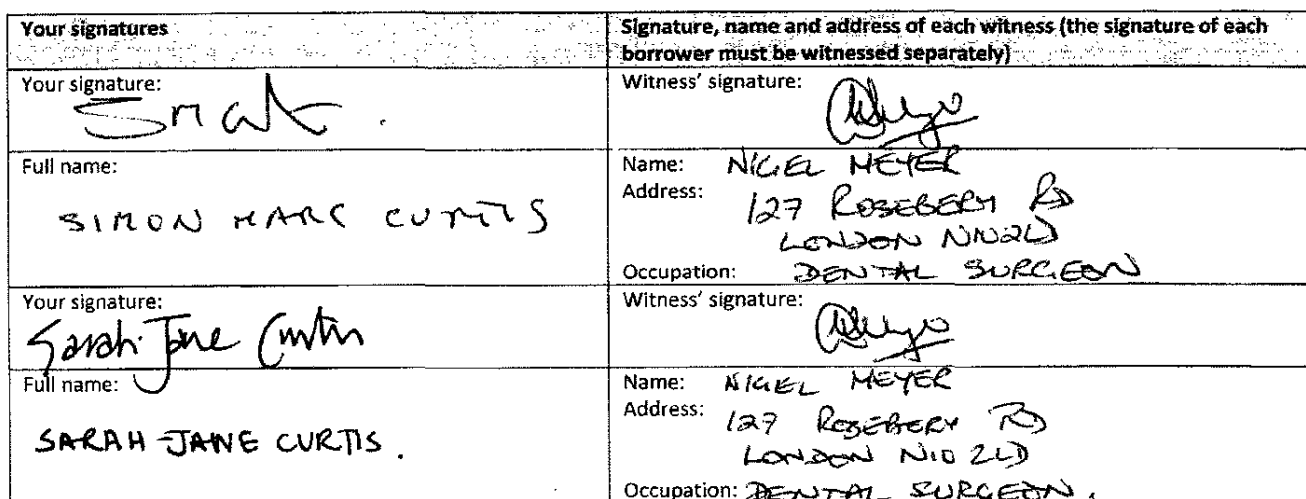 Your signatures
Signature, name and address of each witness (the signature of each
borrower must be witnessed separately)
Your signature:
Witness' signature:
Full name:
SIMON MARC CURTIS
Name: NIGEL MEYER
Address: 127 ROSEBERY RD
LONDON N10 2LD
Occupation: DENTAL SURGEON
Your signature:
Sarah-Jane Curtis
Witness' signature:
Full name:
SARAH-JANE CURTIS.
Name: NIGEL MEYER
Address: 127 ROSEBERY RD
LONDON N10 2LD
Occupation: DENTAL SURGEON.